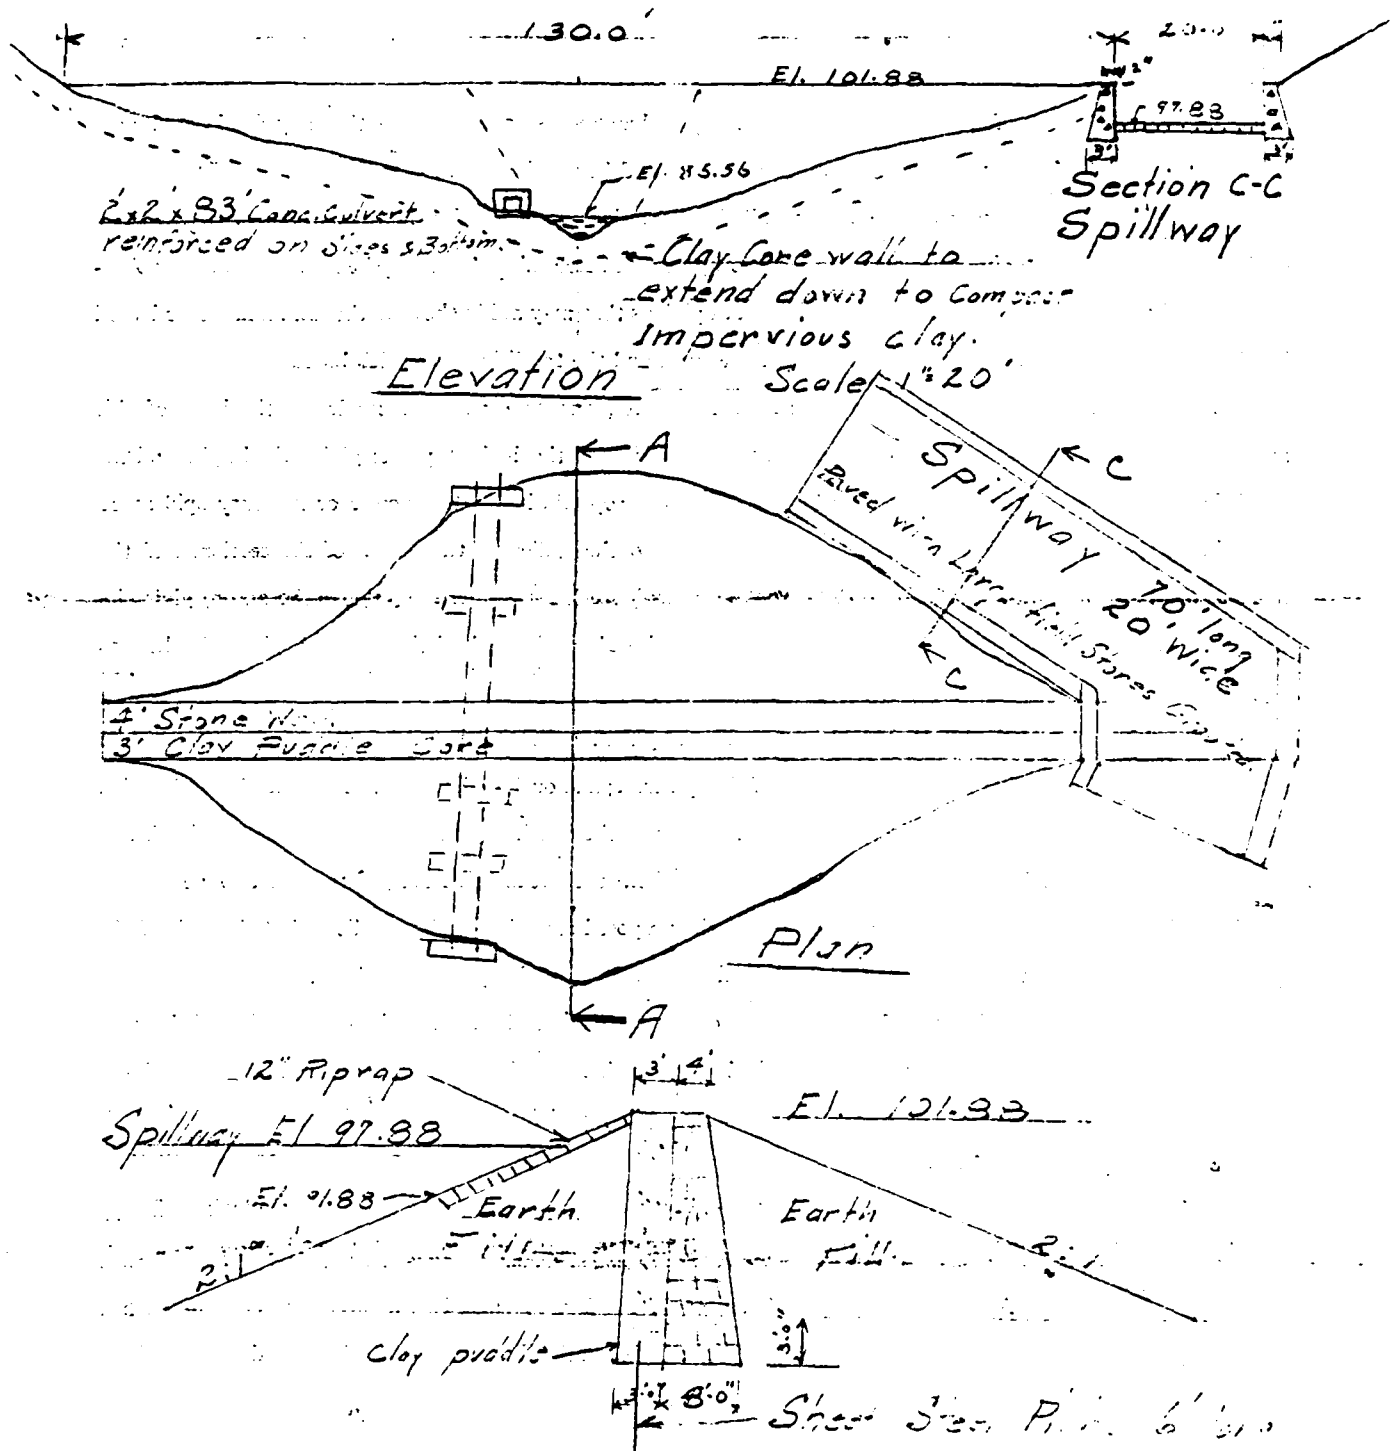 130.0'
20.0
El. 101.88
2"
97.88
El. 85.56
3'
3'
Section C-C
Spillway
2'x2'x83' Conc. Culvert
reinforced on Sides & Bottom
Clay Core wall to
extend down to Compact
Impervious clay.
Elevation
Scale 1"=20'
A
C
Spillway 70' long
20' Wide
Paved with Large field Stones
C
4' Stone
3' Clay Puddle Core
Plan
A
12" Riprap
3' 4'
El. 101.88
Spillway El 97.88
El. 91.88
Earth
Fill
Earth
Fill
2:1
2:1
3'0"
Clay puddle
3'0" 8'0"
Sheet Steel 6'